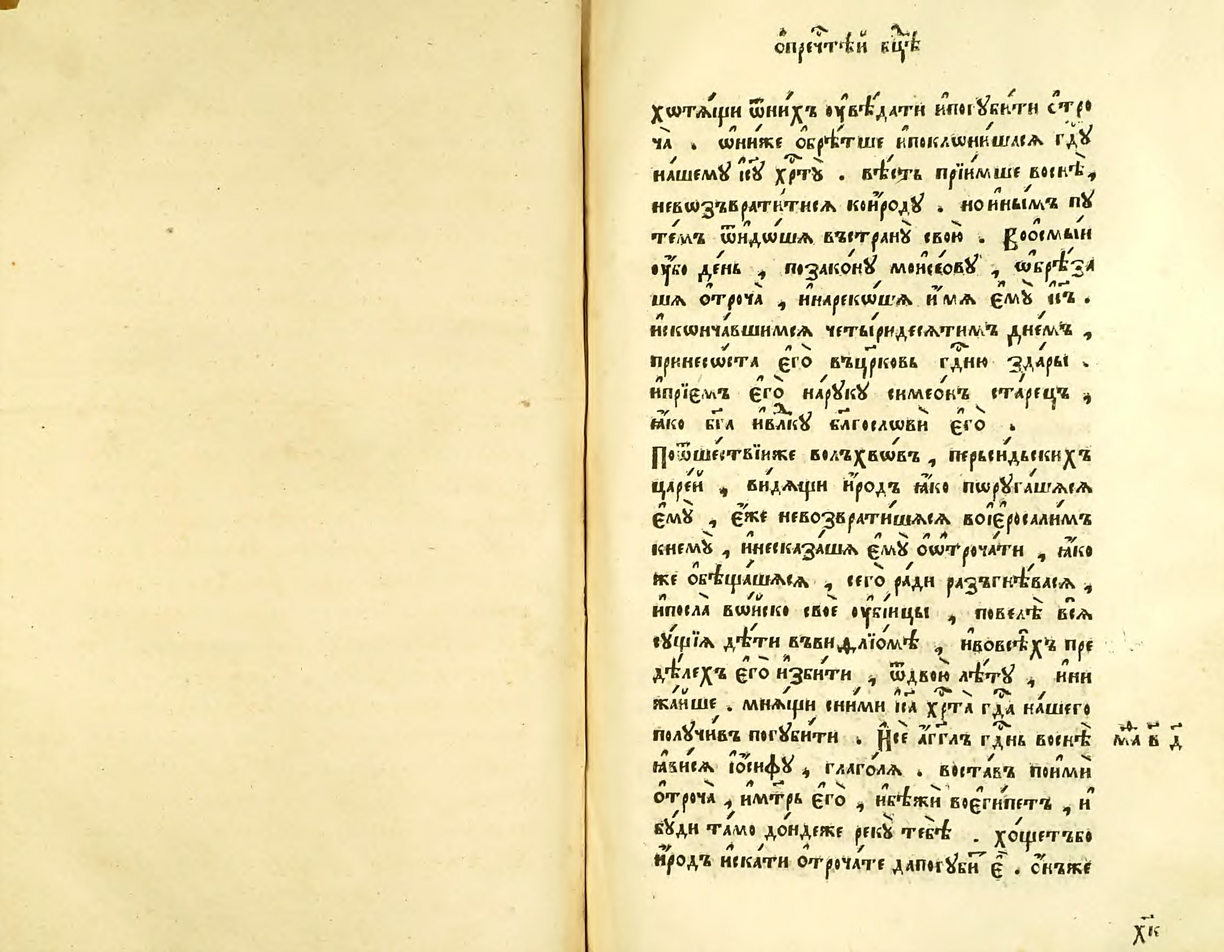 ѻ҆пречⷭ҇тѣй бцⷣѣ
хѡтѧ́щи ѿни́хъ ᲂу҆вѣ́дати и҆погꙋби́ти ѻ҆тро
ча̀ . ѡ҆ниже ѻ҆брѣ́тше и҆поклѡни́шасѧ гдⷭ҇ꙋ
на́шемꙋ і҆с҃ꙋ хрⷭ҇тꙋ̀ . вѣ́сть прїи́мше воснѣ̀,
невѡзъврати́тисѧ коѝродꙋ . но и҆ны́мъ пꙋ
те́мъ ѿидѡ́шѧ въстранꙋ̀ свою̀ . Воѻ҆смы́и
ᲂу҆́бо де́нь , позако́нꙋ моисе́ѻвꙋ , ѡ҆брѣ́за
шѧ ѻ҆троча̀ , и҆нареко́шѧ и҆́мѧ є҆мꙋ̀ і҆с҃ъ .
и҆скѡнча́вшимсѧ четы́ридесѧтимъ дне́мъ ,
принесѡ́ста є҆го̀ въцр҃ковь гдⷭ҇ню здары̀ .
и҆прїе́мъ є҆го̀ на́рꙋкꙋ симео́нъ ста́рецъ ,
ꙗ҆́ко бг҃а и҆влⷣкꙋ бл҃гослѡвѝ є҆го̀ .
Поѿше́ствїиже волъхво́въ , персьи́дьскихъ
царе́й , ви́дѧщи и҆́родъ ꙗ҆́ко пѡрꙋга́шѧсѧ
є҆мꙋ̀ , є҆́же невозврати́шѧсѧ воіе҆росали́мъ
кнемꙋ̀ , и҆несказа́шѧ є҆мꙋ̀ ѻ҆ѡ҆троча́ти , ꙗ҆́ко
же ѻ҆бѣща́шѧсѧ , сего̀ ра́ди разъгнѣ́васѧ ,
и҆посла̀ во́йско своѐ ᲂу҆бі́ицы , повелѣ̀ всѧ̀
сꙋ́щїѧ дѣ́ти въвиѳлїѻ́мѣ , и҆вовсѣ́хъ пре
дѣ́лехъ є҆го̀ и҆зби́ти , ѿдвою̀ лѣ́тꙋ , и҆ни
жа́йше . мнѧ́щи сни́ми і҆с҃а хрⷭ҇та̀ гдⷭ҇а на́шего
полꙋчи́въ погꙋби́ти . И҆сѐ а҆́гг҃лъ гдⷭ҇нь воснѣ̀
ꙗ҆ви́сѧ і҆ѻ́сифꙋ , глаго́лѧ . воста́въ поимѝ
ѻ҆троча̀ , и҆мт҃рь є҆го̀ , и҆бѣжѝ воєги́петъ , и҆
бꙋ́ди та́мо до́ндеже рекꙋ̀ тебѣ̀ . хо́щетъбо
и҆́родъ и҆ска́ти ѻ҆троча́те дапогꙋби́ є҆̀ . ѻ҆́нъже
мⷴ҇а в҃ д҃
х҃к